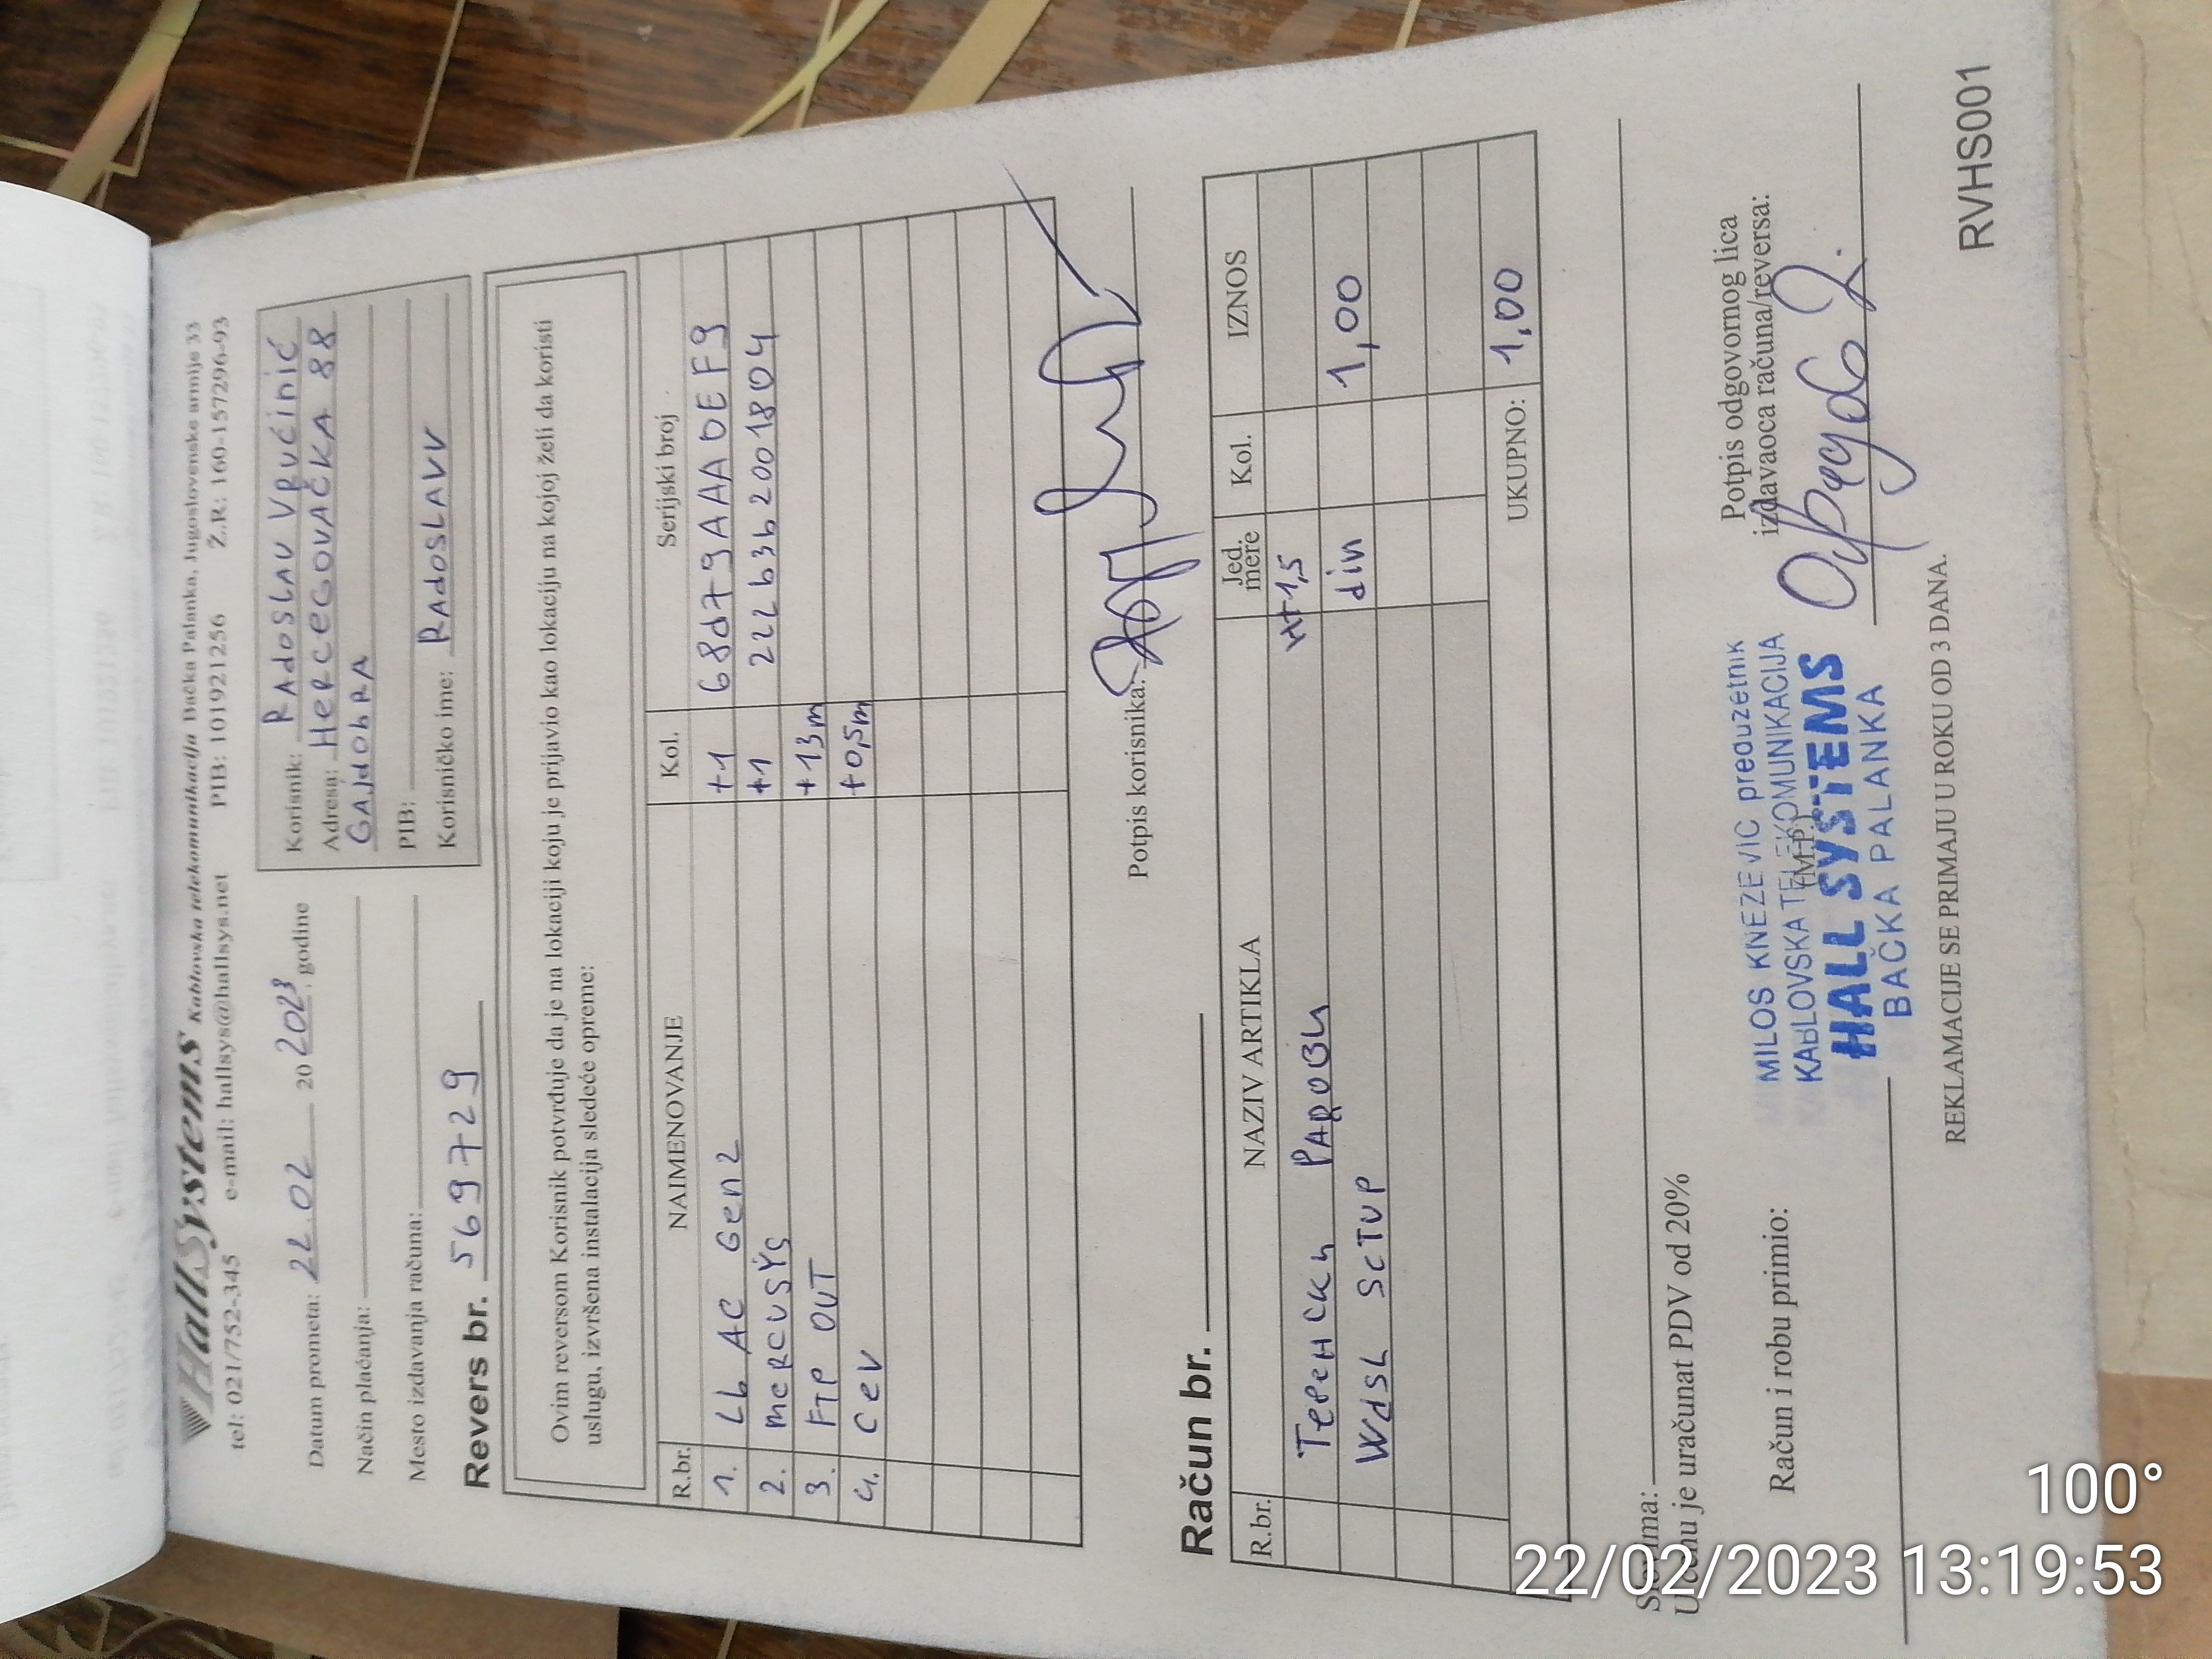 HallSystems Kablovska telekomunikacija Bačka Palanka, Jugoslovenske armije 33
tel: 021/752-345 e-mail: hallsys@hallsys.net PIB: 101921256 Ž.R: 160-157296-93
Datum prometa: 22.02 20 2023. godine
Način plaćanja:
Mesto izdavanja računa:
Revers br. 569729
Korisnik: RAdoSLAV VRućinić
Adresa: HeRCEGOVAČKA 88
GAJdobRA
PIB:
Korisničko ime: RAdoSLAVV
Ovim reversom Korisnik potvrđuje da je na lokaciji koju je prijavio kao lokaciju na kojoj želi da koristi
uslugu, izvršena instalacija sledeće opreme:
R.br. NAIMENOVANJE Kol. Serijski broj
1. Lb AC Gen2 +1 68d79AAADEF9
2. meRCUSYS +1 222b3b2001804
3. FTP OUT +13m
4. CeV +0,5m
Potpis korisnika:
Račun br.
R.br. NAZIV ARTIKLA Jed. mere Kol. IZNOS
Теренски Радови H+1,5
WdSL SeTUP din 1,00
UKUPNO: 1,00
Slovima:
U cenu je uračunat PDV od 20%
Račun i robu primio:
MILOS KNEZEVIC preduzetnik
KABLOVSKA TELEKOMUNIKACIJA
(M.P.)
HALL SYSTEMS
BAČKA PALANKA
Potpis odgovornog lica
izdavaoca računa/reversa:
REKLAMACIJE SE PRIMAJU U ROKU OD 3 DANA.
RVHS001
100°
22/02/2023 13:19:53